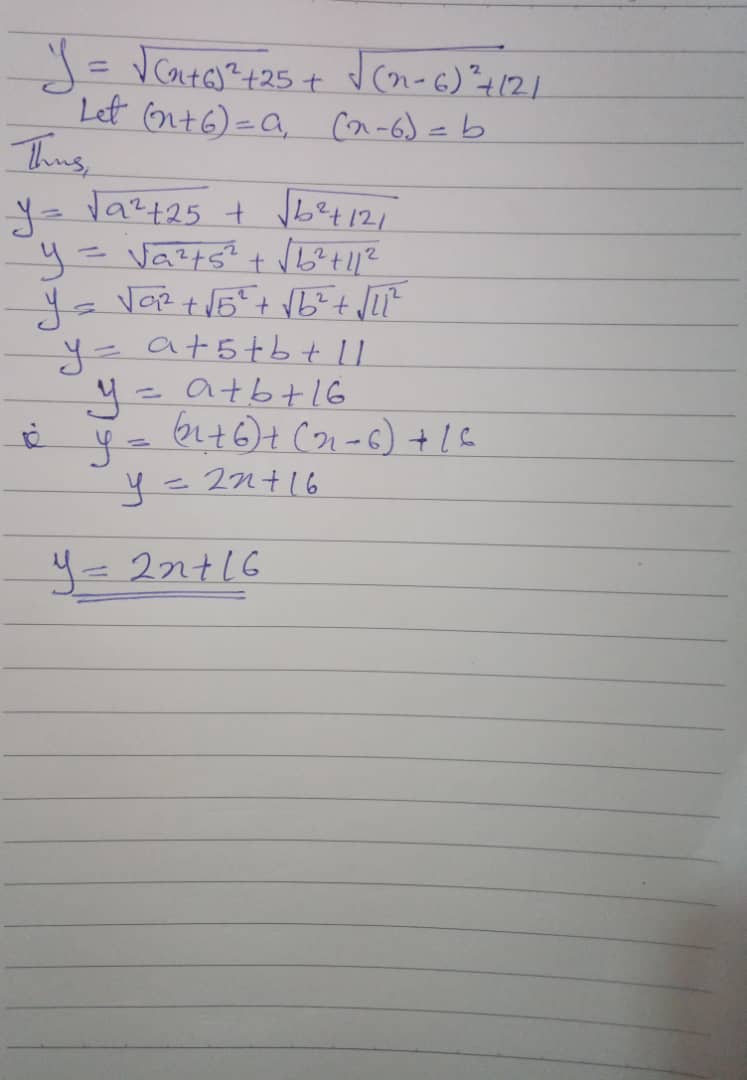 y = √(x+6)²+25 + √(x-6)²+121
Let (x+6) = a, (x-6) = b
Thus,
y = √a²+25 + √b²+121
y = √a²+5² + √b²+11²
y = √a² + √5² + √b² + √11²
y = a+5+b+11
y = a+b+16
y = (x+6)+(x-6)+16
y = 2x+16
y = 2x+16